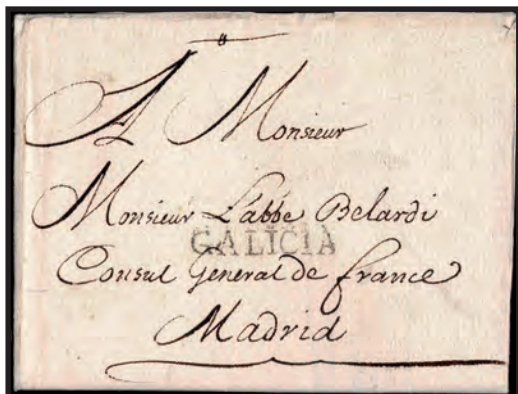 A Monsieur
Monsieur L'abbé Belardi
GALICIA
Consul General de france
Madrid